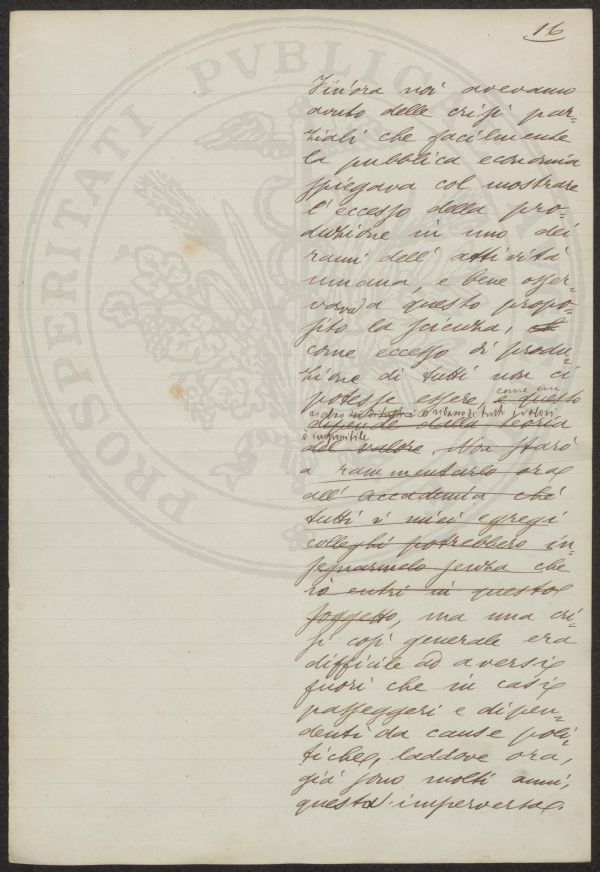 16
PROSPERITATI PVBLICAE
Fin'ora noi avevamo
avuto delle crisi par-
ziali che facilmente
la pubblica economia
spiegava col mostrare
l'eccesso della pro-
duzione in uno dei
rami dell'attività
umana, e bene osser-
vava a questo propo-
sito la scienza,
come eccesso di produ-
zione di tutti non ci
potesse essere, e questo
come un
rialzo o ribasso di tutti i valori
dipende dalla teoria
è impossibile
del valore. Non starò
a rammentarlo ora
all'Accademia chè
tutti i miei egregi
colleghi potrebbero in-
segnarmelo senza che
io entri in questo
soggetto, ma una cri-
si così generale era
difficile ad aversi
fuori che in casi
passeggeri e dipen-
denti da cause poli-
tiche, laddove ora,
già sono molti anni,
questa imperversa.